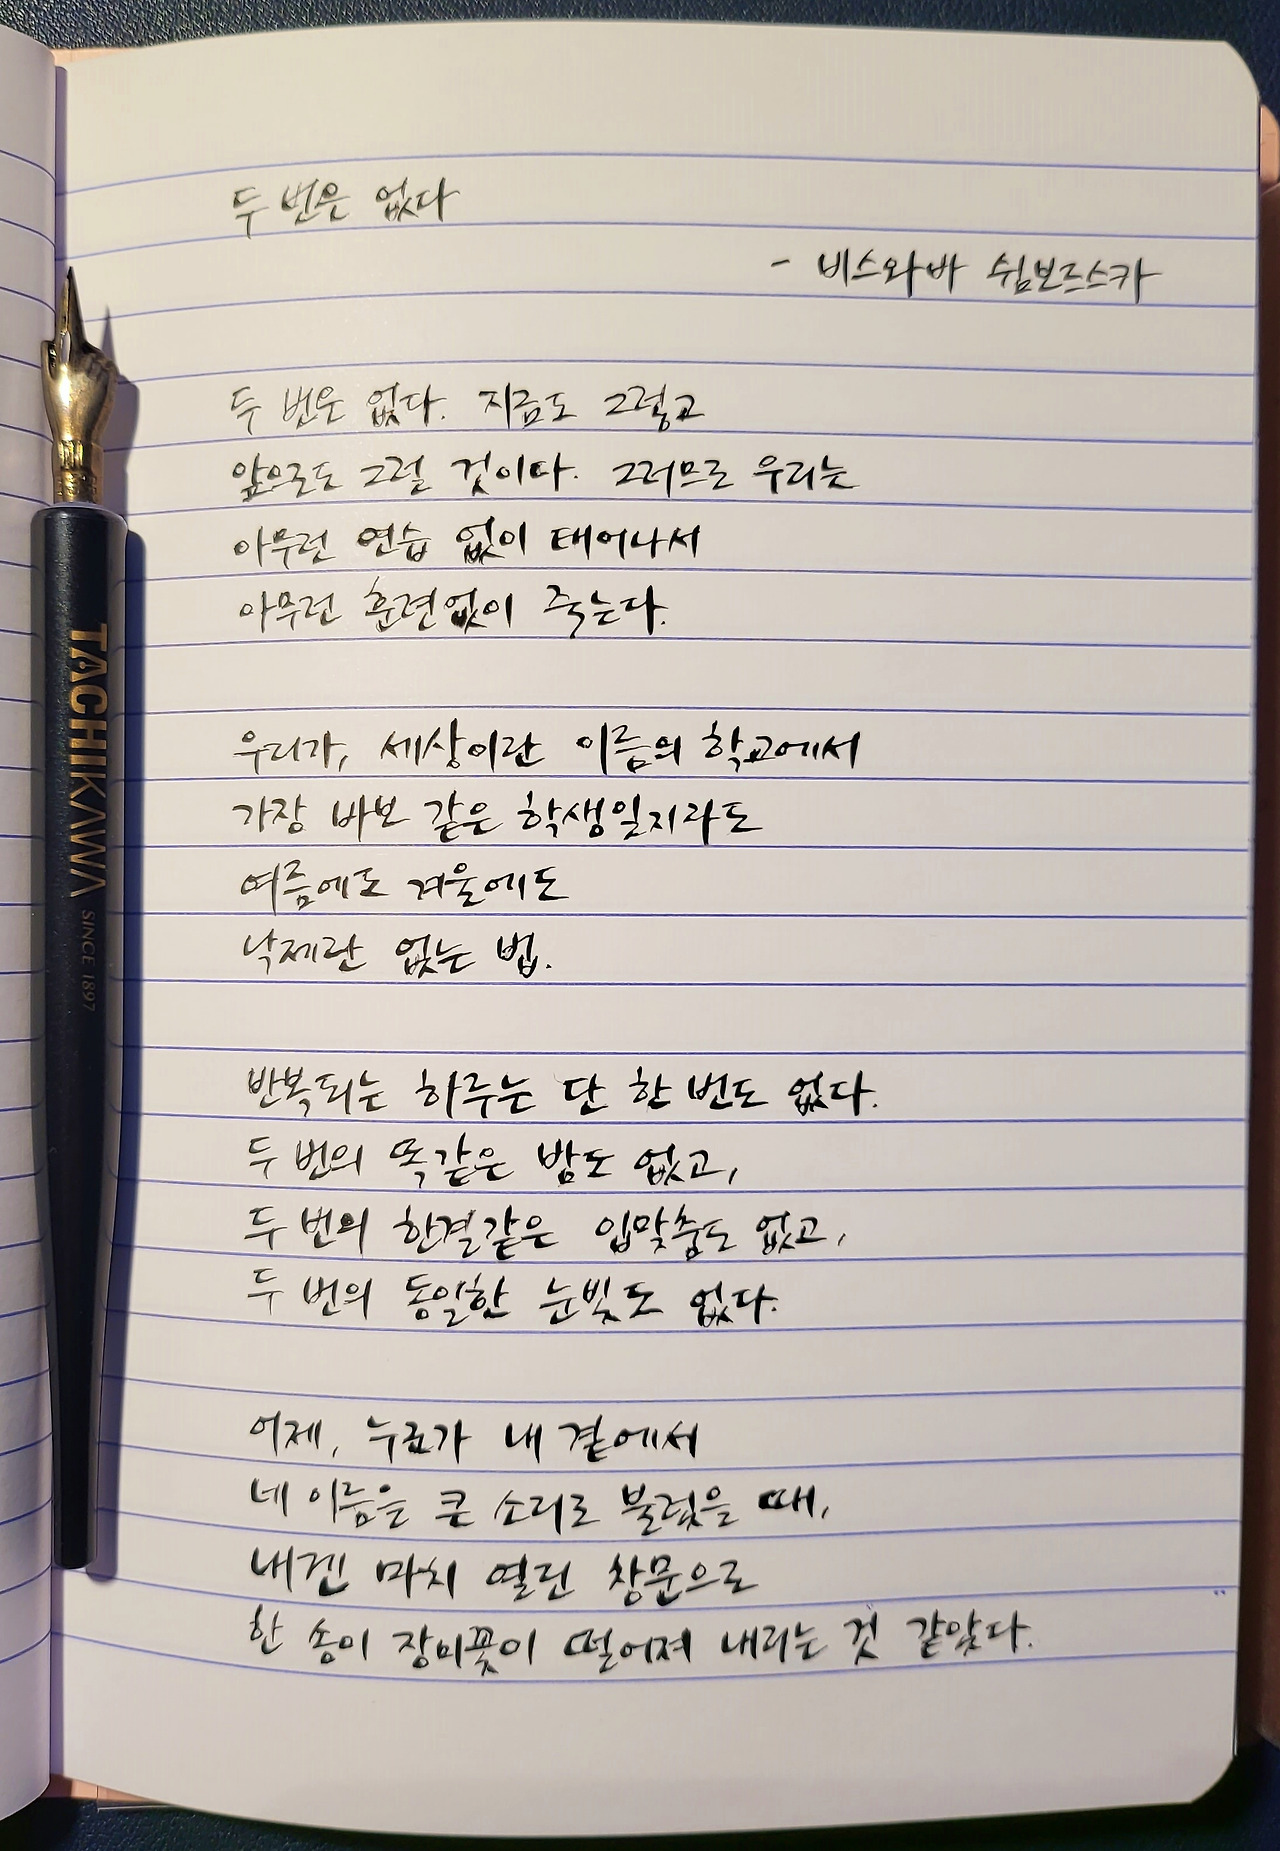 두 번은 없다
- 비스와바 쉼보르스카
두 번은 없다. 지금도 그렇고
앞으로도 그럴 것이다. 그러므로 우리는
아무런 연습 없이 태어나서
아무런 훈련없이 죽는다.
우리가, 세상이란 이름의 학교에서
가장 바보 같은 학생일지라도
여름에도 겨울에도
낙제란 없는 법.
반복되는 하루는 단 한 번도 없다.
두 번의 똑같은 밤도 없고,
두 번의 한결같은 입맞춤도 없고,
두 번의 동일한 눈빛도 없다.
어제, 누군가 내 곁에서
네 이름을 큰 소리로 불렀을 때,
내겐 마치 열린 창문으로
한 송이 장미꽃이 떨어져 내리는 것 같았다.
TACHIKAWA SINCE 1897